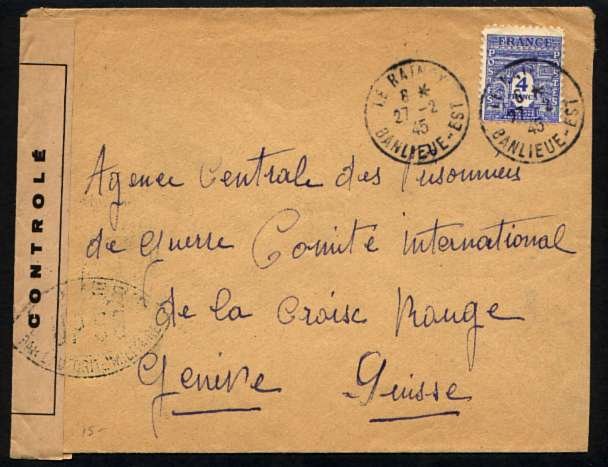 LE RAINCY
8 *
27-2
45
BANLIEUE-EST
FRANCE
POSTES
4
FRANCS
POSTES
8 *
45
BANLIEUE-EST
CONTROLÉ
Agence Centrale des Prisonniers
de guerre Comité international
de la Croix Rouge
Genève Suisse
15-